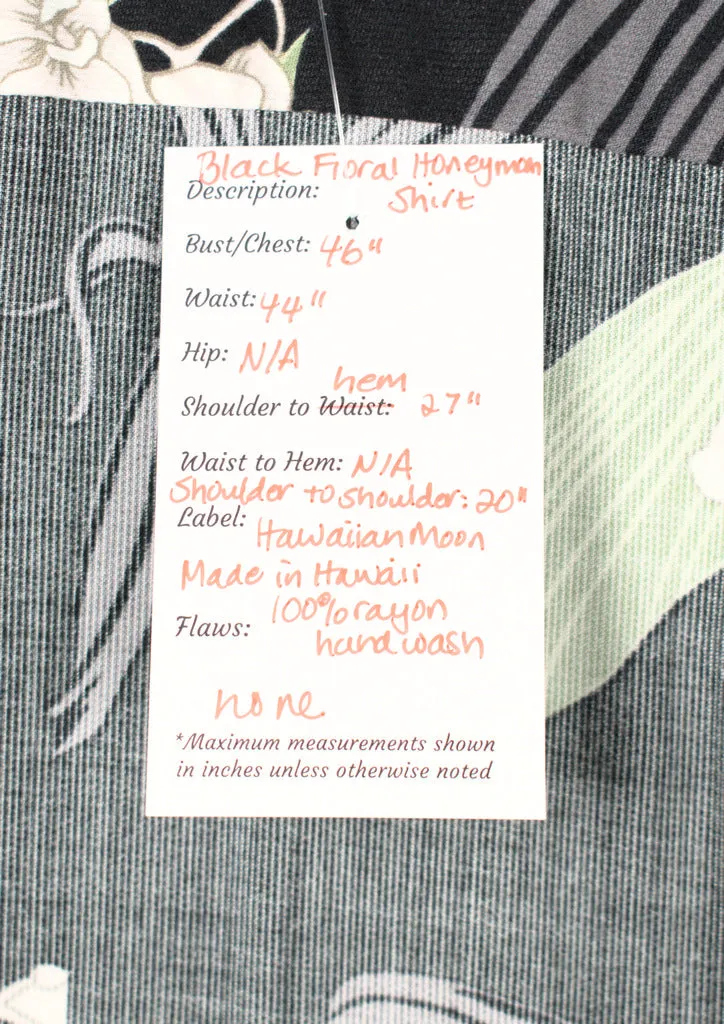 Black Floral Honeymoon
Description: Shirt
Bust/Chest: 46"
Waist: 44"
Hip: N/A
hem
Shoulder to Waist: 27"
Waist to Hem: N/A
Shoulder to shoulder: 20"
Label: Hawaiian Moon
Made in Hawaii
100% rayon
Flaws: hand wash
none
*Maximum measurements shown
in inches unless otherwise noted